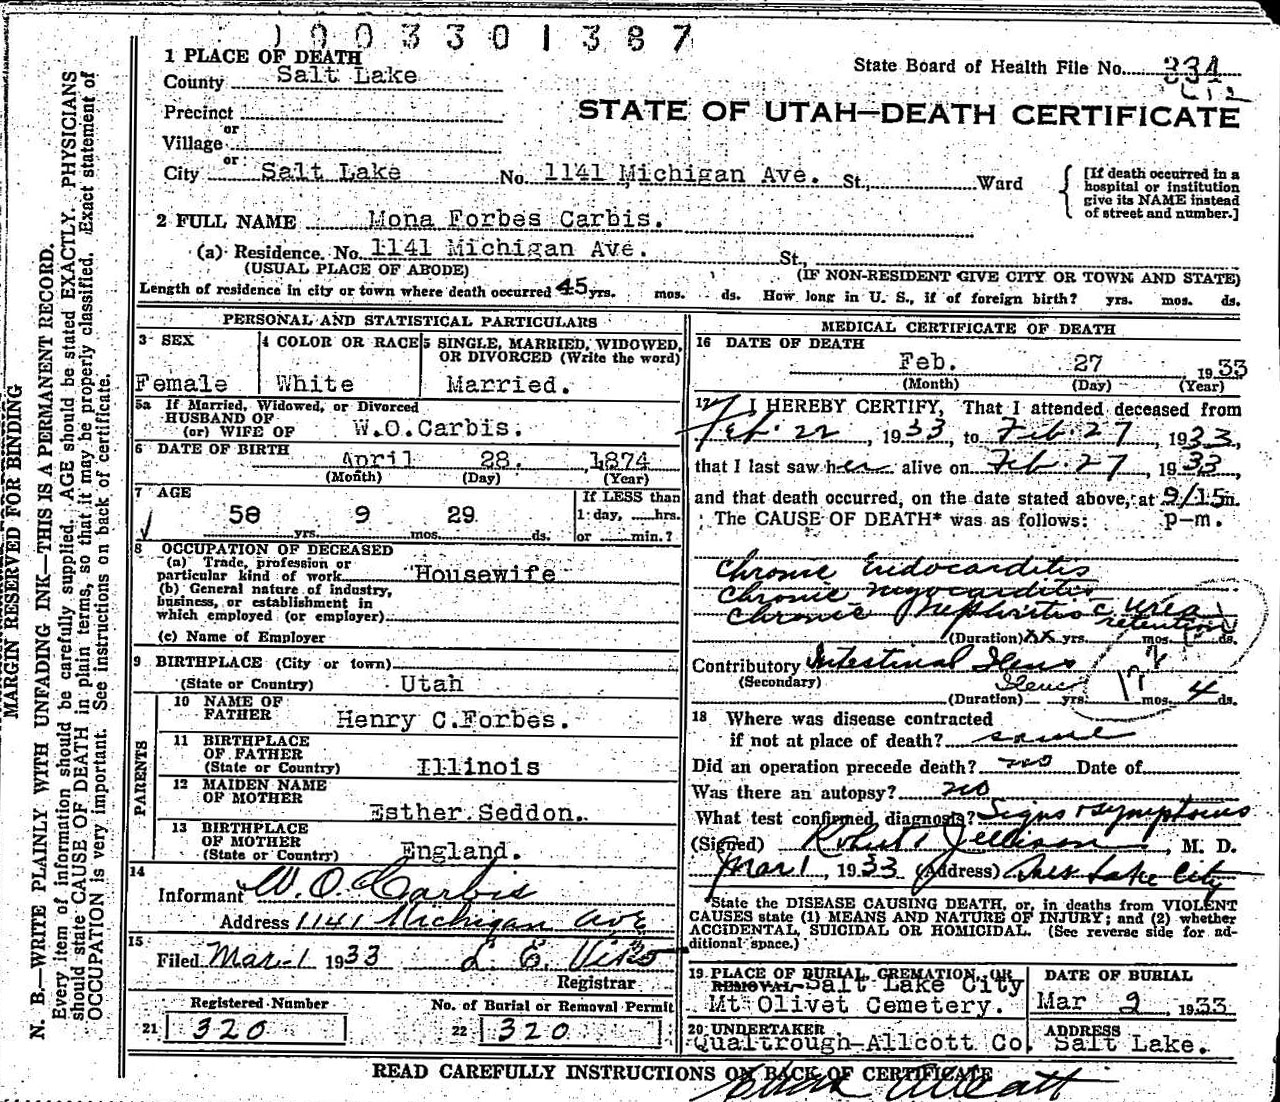 1003301387
1 PLACE OF DEATH
State Board of Health File No. 334
County Salt Lake
STATE OF UTAH—DEATH CERTIFICATE
Precinct
or
Village
or
City Salt Lake No. 1141 Michigan Ave. St., Ward
[If death occurred in a
hospital or institution
give its NAME instead
of street and number.]
2 FULL NAME Mona Forbes Carbis.
(a) Residence. No. 1141 Michigan Ave. St.,
(USUAL PLACE OF ABODE) (IF NON-RESIDENT GIVE CITY OR TOWN AND STATE)
Length of residence in city or town where death occurred 45 yrs. mos. ds. How long in U. S., if of foreign birth? yrs. mos. ds.
PERSONAL AND STATISTICAL PARTICULARS
3 SEX
Female
4 COLOR OR RACE
White
5 SINGLE, MARRIED, WIDOWED,
OR DIVORCED (Write the word)
Married.
5a If Married, Widowed, or Divorced
HUSBAND OF
(or) WIFE OF W.O.Carbis.
6 DATE OF BIRTH
April 28. ,1874
(Month) (Day) (Year)
7 AGE
58 yrs. 9 mos. 29 ds.
If LESS than
1 day, ......hrs.
or ......min.?
8 OCCUPATION OF DECEASED
(a) Trade, profession or
particular kind of work Housewife
(b) General nature of industry,
business, or establishment in
which employed (or employer)
(c) Name of Employer
9 BIRTHPLACE (City or town)
(State or Country) Utah
PARENTS
10 NAME OF
FATHER Henry C.Forbes.
11 BIRTHPLACE
OF FATHER
(State or Country) Illinois
12 MAIDEN NAME
OF MOTHER Esther Seddon.
13 BIRTHPLACE
OF MOTHER
(State or Country) England.
14
Informant W. O. Carbis
Address 1141 Michigan ave
15
Filed Mar 1 1933 L. E.
Registrar
Registered Number
21 320
No. of Burial or Removal Permit
22 320
MEDICAL CERTIFICATE OF DEATH
16 DATE OF DEATH
Feb. 27 1933
(Month) (Day) (Year)
17 I HEREBY CERTIFY, That I attended deceased from
Feb. 22, 1933, to Feb. 27, 1933,
that I last saw her alive on Feb. 27, 1933,
and that death occurred, on the date stated above, at 9/15 m.
The CAUSE OF DEATH* was as follows: p-m.
Chronic Endocarditis
Chronic myocarditis
Chronic Nephritis c urea
retention
(Duration) xx yrs. mos. ds.
Contributory Intestinal Ileus
(Secondary)
Ileus
(Duration) yrs. mos. 4 ds.
18 Where was disease contracted
if not at place of death? same
Did an operation precede death? no Date of
Was there an autopsy? no
What test confirmed diagnosis? Signs & symptoms
(Signed) Robert Jellison, M. D.
Mar 1, 1933 (Address) Salt Lake City
*State the DISEASE CAUSING DEATH, or, in deaths from VIOLENT
CAUSES state (1) MEANS AND NATURE OF INJURY; and (2) whether
ACCIDENTAL, SUICIDAL OR HOMICIDAL. (See reverse side for ad-
ditional space.)
19 PLACE OF BURIAL, CREMATION, OR
REMOVAL Salt Lake City
Mt Olivet Cemetery.
DATE OF BURIAL
Mar 2, 1933
20 UNDERTAKER
Qualtrough-Allcott Co.
ADDRESS
Salt Lake.
READ CAREFULLY INSTRUCTIONS ON BACK OF CERTIFICATE
MARGIN RESERVED FOR BINDING
N. B.—WRITE PLAINLY WITH UNFADING INK—THIS IS A PERMANENT RECORD.
Every item of information should be carefully supplied. AGE should be stated EXACTLY. PHYSICIANS
should state CAUSE OF DEATH in plain terms, so that it may be properly classified. Exact statement of
OCCUPATION is very important. See instructions on back of certificate.